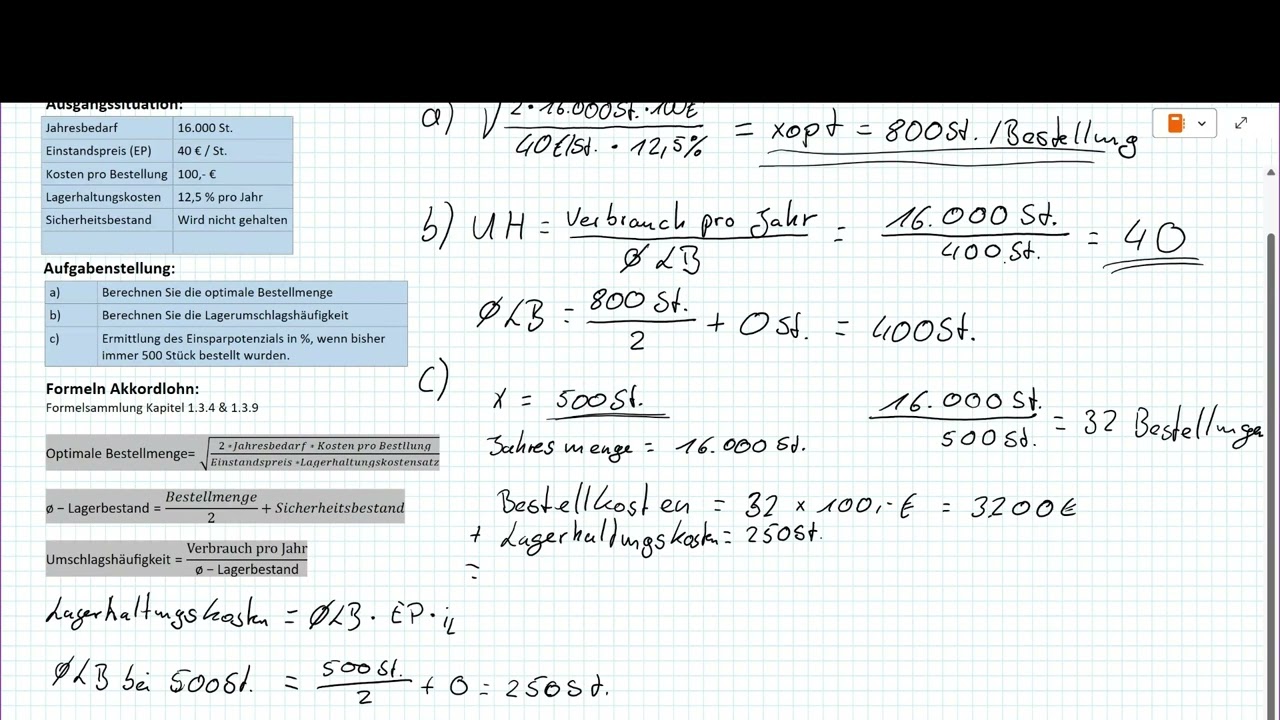 Ausgangssituation:
Jahresbedarf 16.000 St.
Einstandspreis (EP) 40 € / St.
Kosten pro Bestellung 100,- €
Lagerhaltungskosten 12,5 % pro Jahr
Sicherheitsbestand Wird nicht gehalten
Aufgabenstellung:
a) Berechnen Sie die optimale Bestellmenge
b) Berechnen Sie die Lagerumschlagshäufigkeit
c) Ermittlung des Einsparpotenzials in %, wenn bisher
immer 500 Stück bestellt wurden.
Formeln Akkordlohn:
Formelsammlung Kapitel 1.3.4 & 1.3.9
Optimale Bestellmenge= √ 2 *Jahresbedarf * Kosten pro Bestllung
Einstandspreis *Lagerhaltungskostensatz
ø – Lagerbestand = Bestellmenge / 2 + Sicherheitsbestand
Umschlagshäufigkeit = Verbrauch pro Jahr
ø – Lagerbestand
Lagerhaltungskosten = ØLB · EP · iL
ØLB bei 500St. = 500St. / 2 + 0 = 250St.
a) √ 2 · 16.000St. · 100€
40€/St. · 12,5% = xopt = 800St. /Bestellung
b) UH = Verbrauch pro Jahr / ØLB = 16.000 St. / 400.St. = 40
ØLB = 800 St. / 2 + 0 St. = 400St.
c)
x = 500St.
16.000 St. / 500St. = 32 Bestellungen
Jahresmenge = 16.000 St.
Bestellkosten = 32 x 100,-€ = 3200€
+ Lagerhaltungskosten = 250St.
=